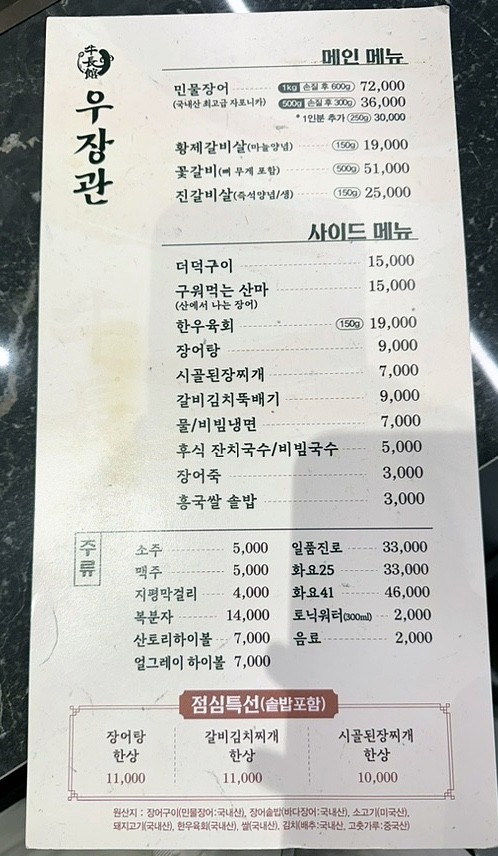 牛長館
우장관
메인 메뉴
민물장어 1kg 손질 후 600g 72,000
(국내산 최고급 자포니카) 500g 손질 후 300g 36,000
* 1인분 추가 250g 30,000
황제갈비살(마늘양념) 150g 19,000
꽃갈비(뼈 무게 포함) 500g 51,000
진갈비살(즉석양념/생) 150g 25,000
사이드 메뉴
더덕구이 15,000
구워먹는 산마 15,000
(산에서 나는 장어)
한우육회 150g 19,000
장어탕 9,000
시골된장찌개 7,000
갈비김치뚝배기 9,000
물/비빔냉면 7,000
후식 잔치국수/비빔국수 5,000
장어죽 3,000
흥국쌀 솥밥 3,000
주류
소주 5,000 일품진로 33,000
맥주 5,000 화요25 33,000
지평막걸리 4,000 화요41 46,000
복분자 14,000 토닉워터(300ml) 2,000
산토리하이볼 7,000 음료 2,000
얼그레이 하이볼 7,000
점심특선(솥밥포함)
장어탕 갈비김치찌개 시골된장찌개
한상 한상 한상
11,000 11,000 10,000
원산지 : 장어구이(민물장어:국내산), 장어솥밥(바다장어:국내산), 소고기(미국산),
돼지고기(국내산), 한우육회(국내산), 쌀(국내산), 김치(배추:국내산, 고춧가루:중국산)